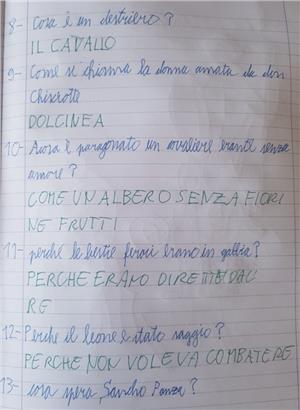 8- Cosa è un destriero?
IL CAVALLO
9- Come si chiama la donna amata da don
Chisciotte
DOLCINEA
10- A cosa è paragonato un cavaliere errante senza
amore?
COME UN ALBERO SENZA FIORI
NE FRUTTI
11- perché le bestie feroci erano in gabbia?
PERCHE ERANO DIRETTE DAL
RE
12- Perché il leone è stato saggio?
PERCHE NON VOLEVA COMBATERE
13- cosa spera Sancho Panza?